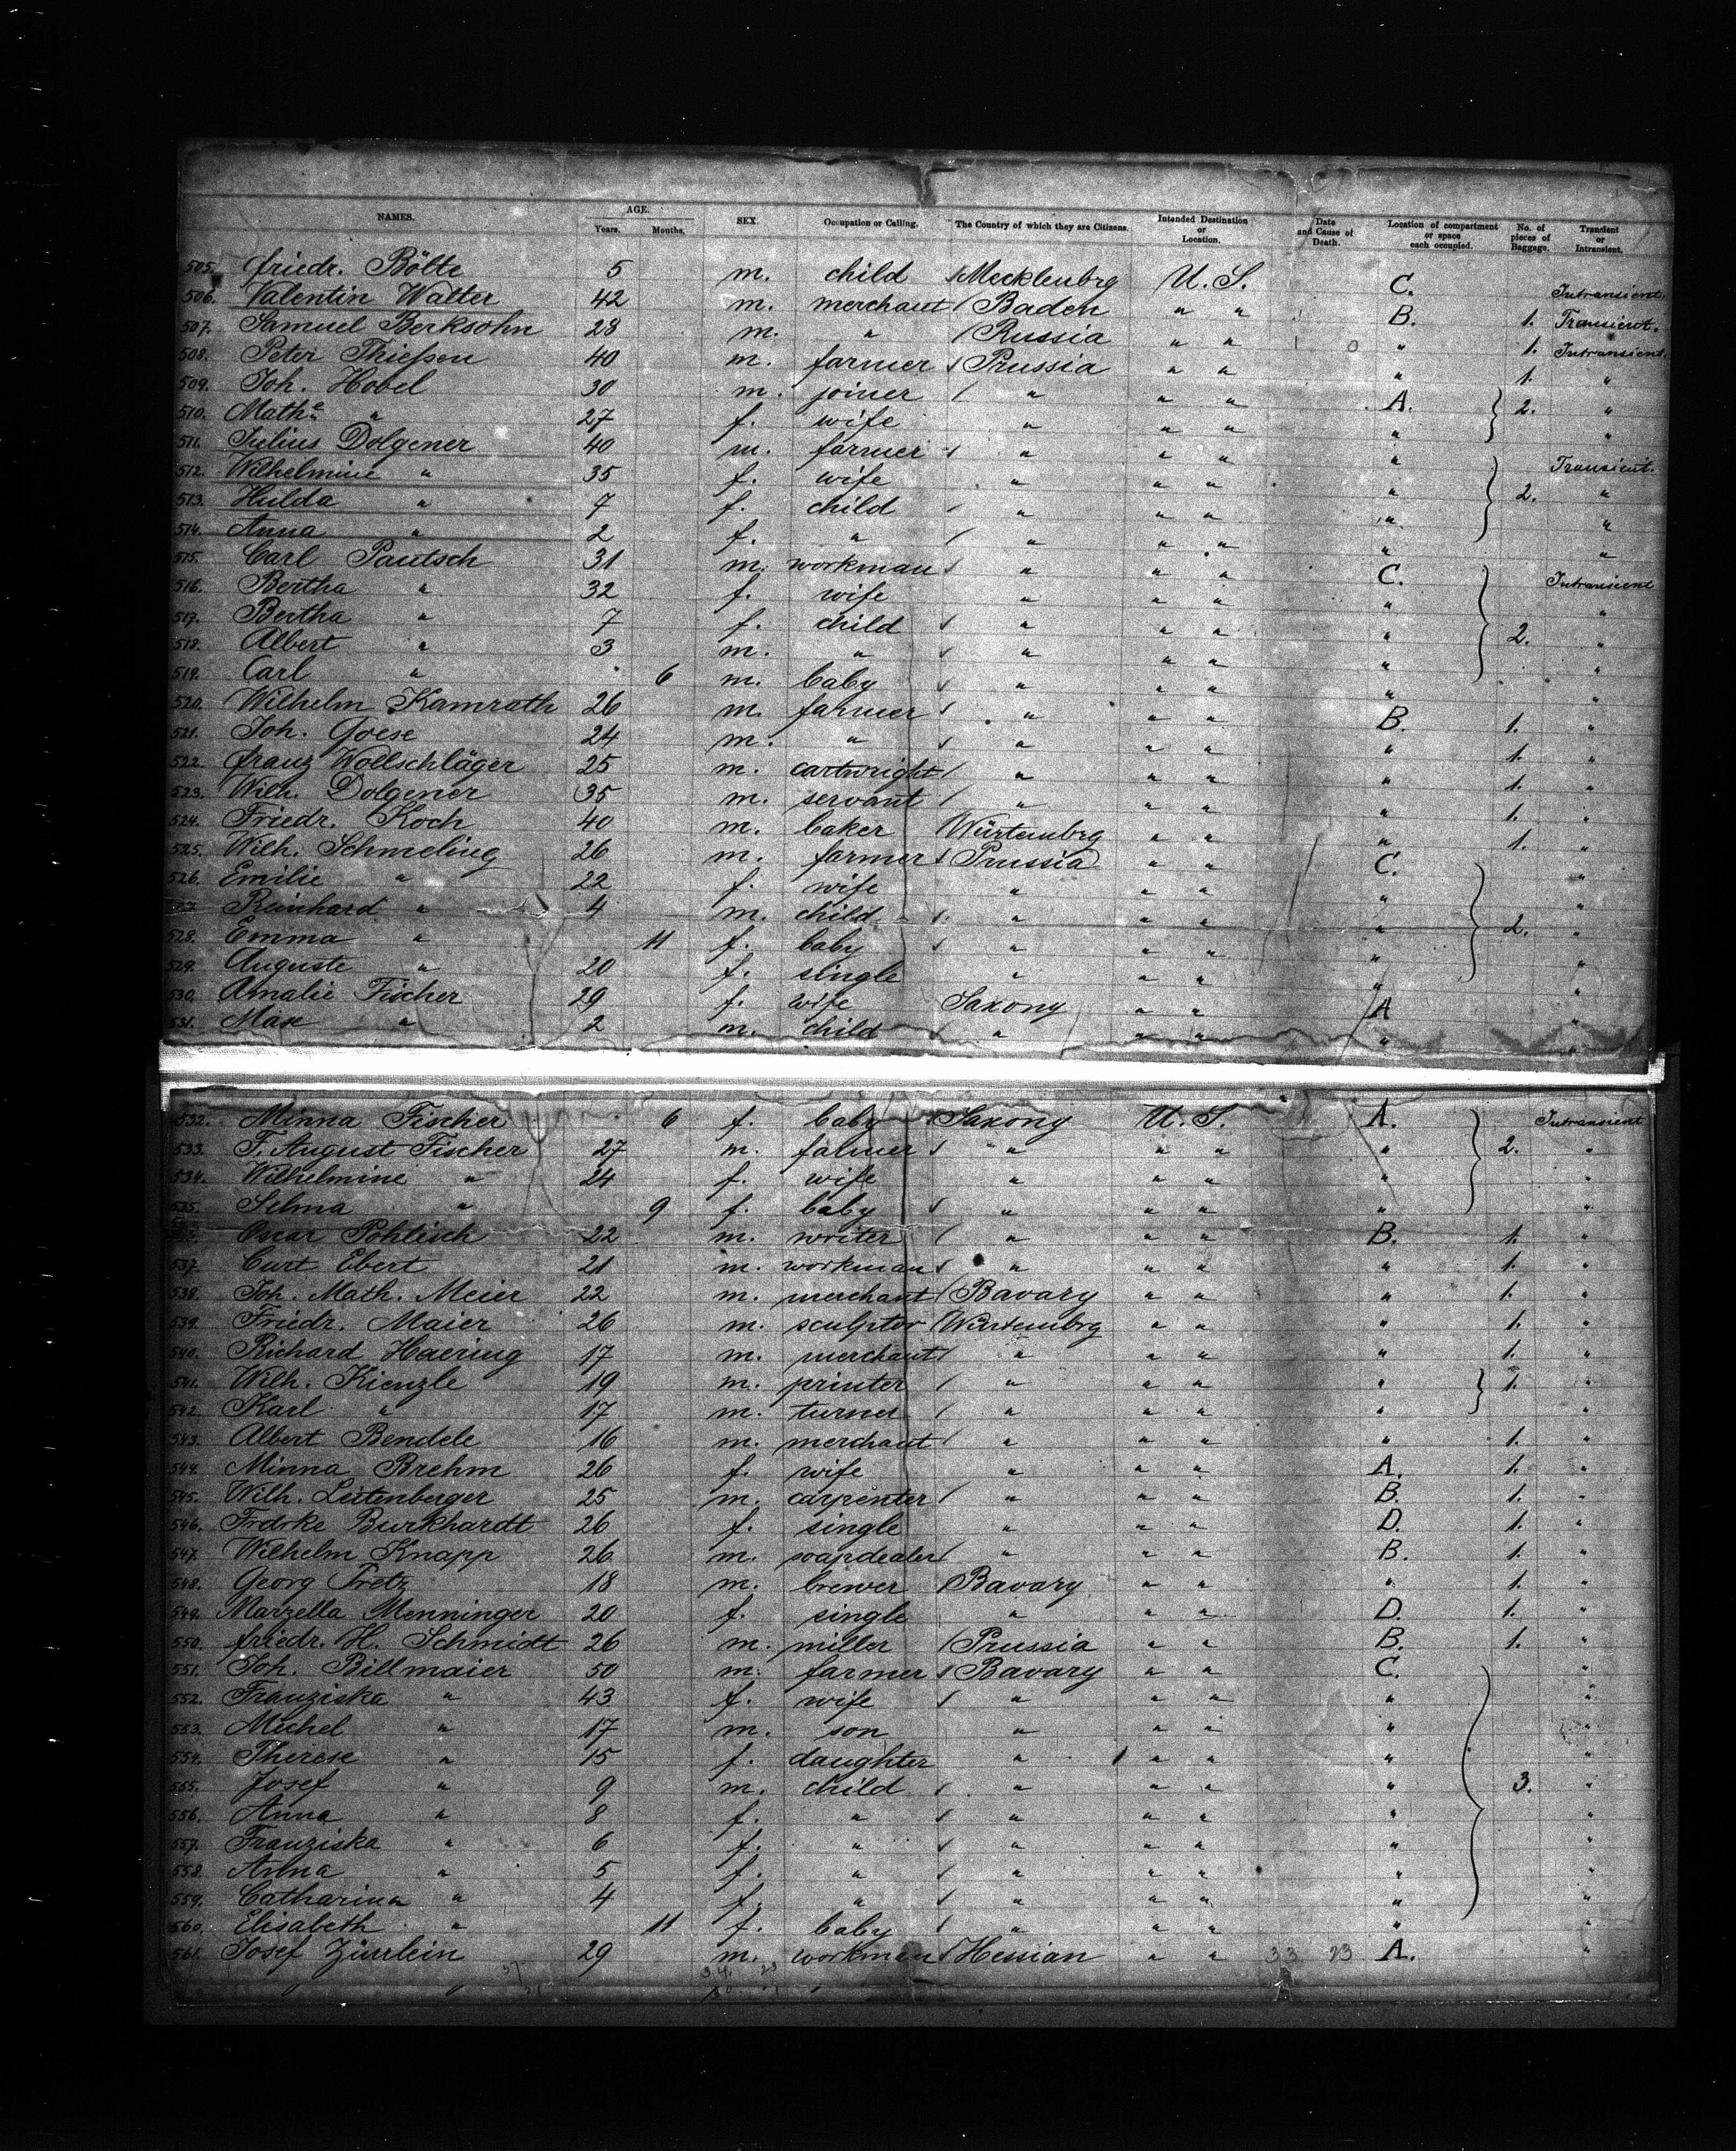 NAMES. AGE. Years. Months. SEX. Occupation or Calling. The Country of which they are Citizens. Intended Destination or Location. Date and Cause of Death. Location of compartment or space each occupied. No. of pieces of Baggage. Transient or Intransient.
505. Friedr. Bölte 5 m. child Mecklenbrg U. S. C. Intransient.
506. Valentin Walter 42 m. merchant Baden " " B. 1. Transient.
507. Samuel Berksohn 28 m. " Russia " " " 1. Intransient.
508. Peter Thießen 40 m. farmer Prussia " " " 1. "
509. Joh. Hobel 30 m. joiner " " " A. 2. "
510. Mathe " 27 f. wife " " " " "
511. Julius Dolgener 40 m. farmer " " " " Transient.
512. Wilhelmine " 35 f. wife " " " " 2. "
513. Hulda " 7 f. child " " " " "
514. Anna " 2 f. " " " " " "
515. Carl Pautsch 31 m. workman " " " C. Intransient
516. Bertha " 32 f. wife " " " " "
517. Bertha " 7 f. child " " " " 2. "
518. Albert " 3 m. " " " " " "
519. Carl " 6 m. baby " " " " "
520. Wilhelm Kamrath 26 m. farmer " " " B. 1. "
521. Joh. Goese 24 m. " " " " " 1. "
522. Franz Wollschläger 25 m. cartwright " " " " 1. "
523. Wilh. Dolgener 35 m. servant " " " " 1. "
524. Friedr. Koch 40 m. baker Würtembrg " " " 1. "
525. Wilh. Schmeling 26 m. farmer Prussia " " C. "
526. Emilie " 22 f. wife " " " " "
527. Reinhard " 4 m. child " " " " 2. "
528. Emma " 11 f. baby " " " " "
529. Auguste " 20 f. single " " " " "
530. Amalie Fischer 29 f. wife Saxony " " A "
531. Max " 2 m. child " " " " "
532. Minna Fischer 6 f. baby Saxony U. S. A. Intransient
533. F. August Fischer 27 m. farmer " " " " 2. "
534. Wilhelmine " 24 f. wife " " " " "
535. Selma " 9 f. baby " " " " "
Oscar Pohlisch 22 m. writer " " " B. 1. "
537. Curt Ebert 21 m. workman " " " " 1. "
538. Joh. Math. Meier 22 m. merchant Bavary " " " 1. "
539. Friedr. Maier 26 m. sculptor Würtembrg " " " 1. "
540. Richard Haering 17 m. merchant " " " " 1. "
541. Wilh. Kienzle 19 m. printer " " " " 1. "
542. Karl " 17 m. turner " " " " "
543. Albert Bendele 16 m. merchant " " " " 1. "
544. Minna Brehm 26 f. wife " " " A. 1. "
545. Wilh. Leitenberger 25 m. carpenter " " " B. 1. "
546. Frdrke Burkhardt 26 f. single " " " D. 1. "
547. Wilhelm Knapp 26 m. soapdealer " " " B. 1. "
548. Georg Fretz 18 m. brewer Bavary " " " 1. "
549. Marzella Menninger 20 f. single " " " D. 1. "
550. Friedr. H. Schmidt 26 m. miller Prussia " " B. 1. "
551. Joh. Billmaier 50 m. farmer Bavary " " C. "
552. Franziska " 43 f. wife " " " " "
553. Michel " 17 m. son " " " " "
554. Therese " 15 f. daughter " " " " "
555. Josef " 9 m. child " " " " 3. "
556. Anna " 8 f. " " " " " "
557. Franziska " 6 f. " " " " " "
558. Anna " 5 f. " " " " " "
559. Catharina " 4 f. " " " " " "
560. Elisabeth " 11 f. baby " " " " "
561. Josef Zürrlein 29 m. workman Hessian " " 33 23 A. "